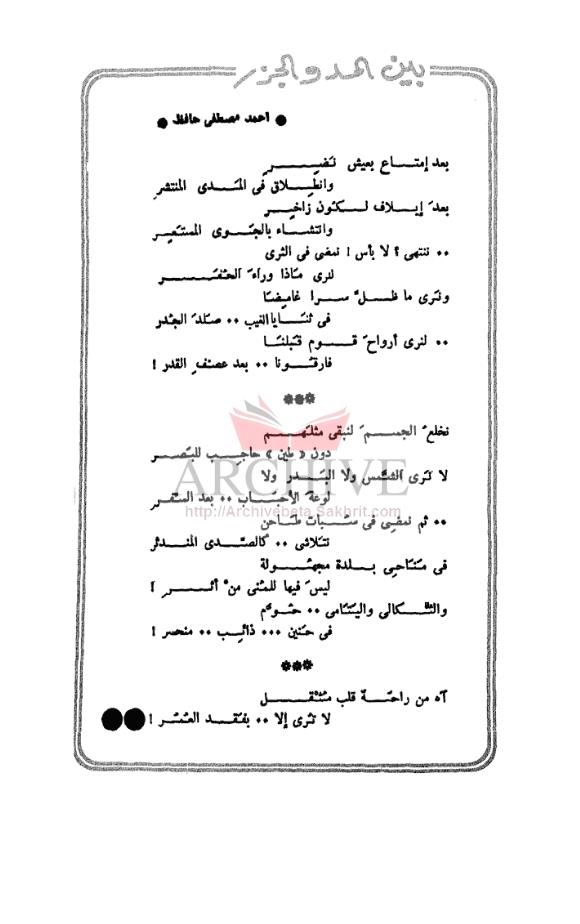 بين المد والجزر
● احمد مصطفى حافظ ●
بعد إمتاع بعيش نضير
وانطلاق فى المدى المنتشر
بعد إيلاف لكون زاخر
وانتشاء بالجوى المستعر
.. ننتهى ؟ لا بأس ! نمضى فى الثرى
لنرى ماذا وراء الحفر
ونرى ما ظل سرا غامضا
فى ثنايا الغيب .. صلد الجدر
.. لنرى أرواح قوم قبلنا
فارقونا .. بعد عصف القدر !
***
نخلع الجسم لنبقى مثلهم
دون « طين » حاجب للبصر
لا نرى الشمس ولا البدر ولا
لوعة الأحباب .. بعد السفر
.. ثم نمضى فى سبات طاحن
نتلاشى .. كالصدى المندثر
فى مناحى بلدة مجهولة
ليس فيها للمنى من أثر !
والثكالى واليتامى .. حوم
فى حنين ... ذائب .. منحصر !
***
آه من راحة قلب مثقل
لا نرى إلا .. بفقد العمر !
ARCHIVE
http://Archivebeta.Sakhrit.com